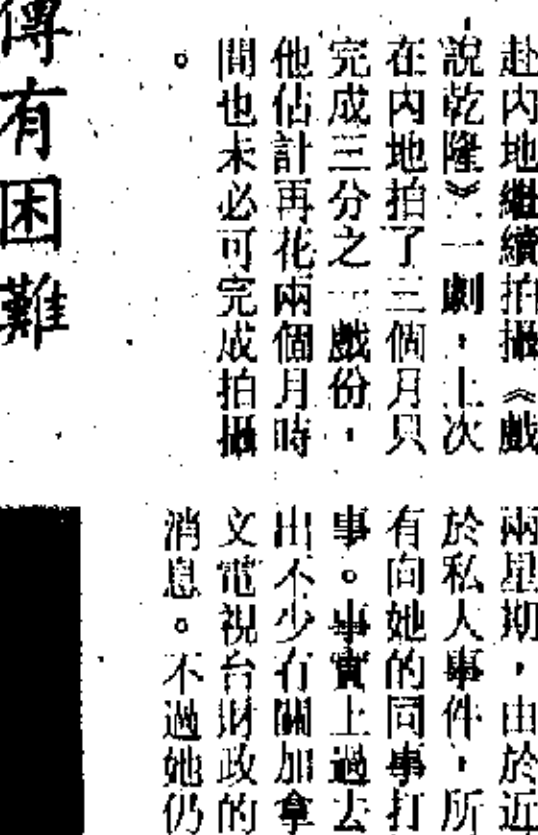 赴內地繼續拍攝《戲
說乾隆》一劇，上次
在內地拍了三個月只
完成三分之一戲份，
他估計再花兩個月時
間也未必可完成拍攝
。
兩星期，由於近
於私人事件，所
有向她的同事打
事。事實上過去
出不少有關加拿
文電視台財政的
消息。不過她仍
傳有困難